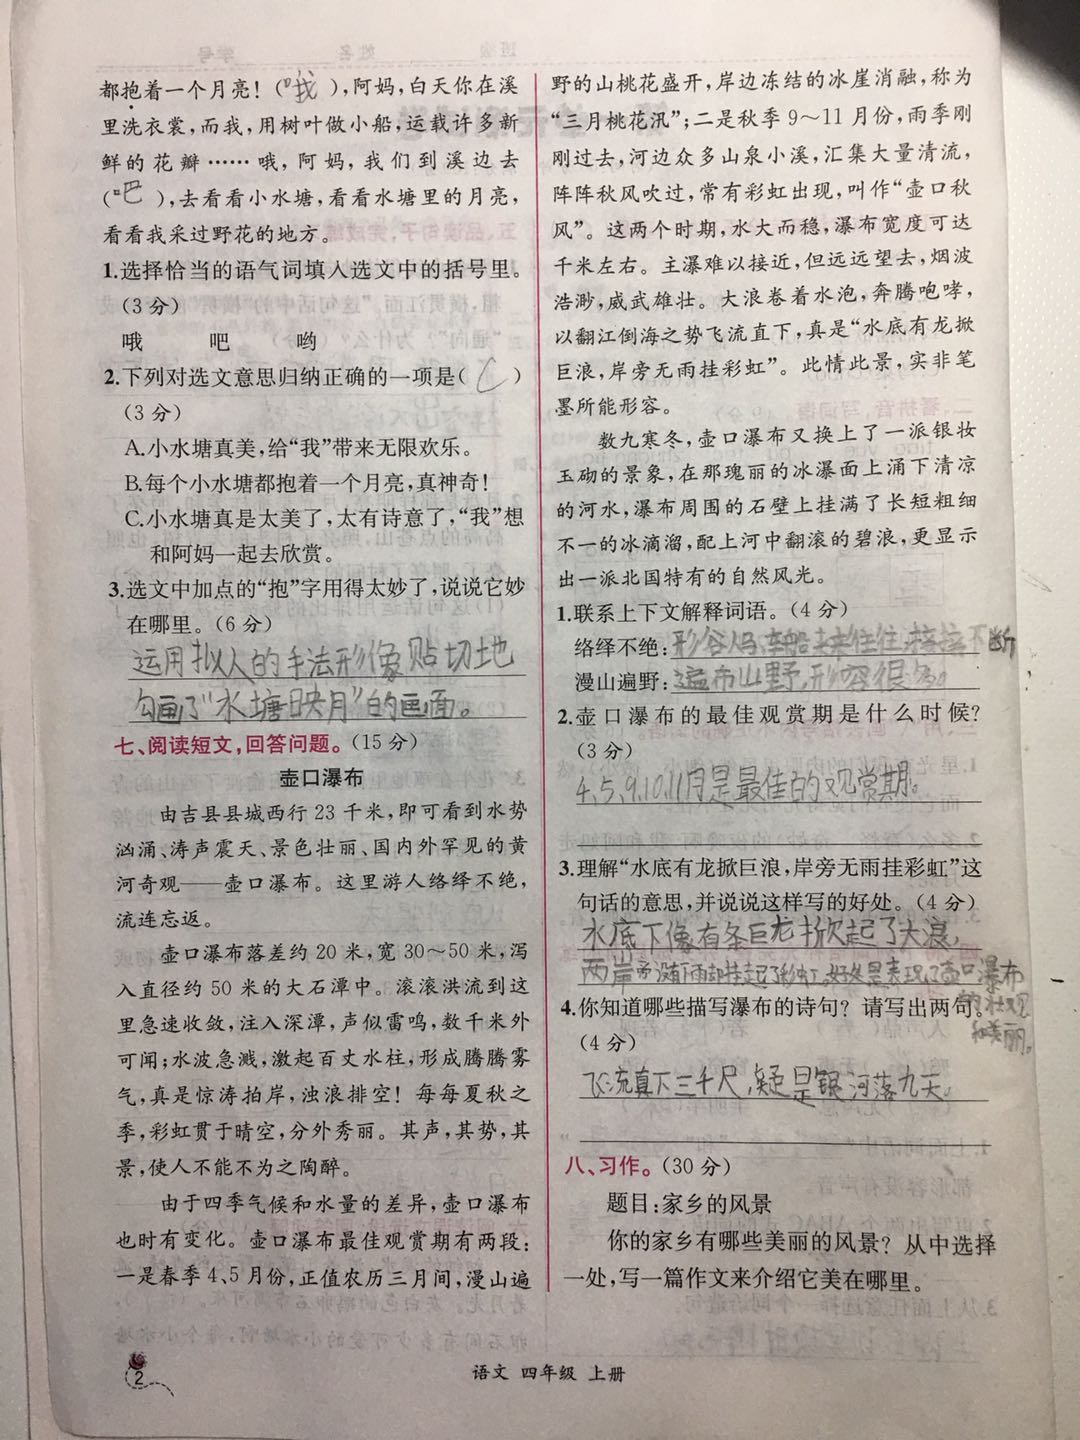 都抱着一个月亮！(哦),阿妈,白天你在溪
里洗衣裳,而我,用树叶做小船,运载许多新
鲜的花瓣……哦,阿妈,我们到溪边去
(吧),去看看小水塘,看看水塘里的月亮,
看看我采过野花的地方。
1.选择恰当的语气词填入选文中的括号里。
(3分)
哦 吧 哟
2.下列对选文意思归纳正确的一项是(C)
(3分)
A.小水塘真美,给“我”带来无限欢乐。
B.每个小水塘都抱着一个月亮,真神奇！
C.小水塘真是太美了,太有诗意了,“我”想
和阿妈一起去欣赏。
3.选文中加点的“抱”字用得太妙了,说说它妙
在哪里。(6分)
运用拟人的手法形像贴切地
勾画了“水塘映月”的画面。
七、阅读短文,回答问题。(15分)
壶口瀑布
由吉县县城西行23千米,即可看到水势
汹涌、涛声震天、景色壮丽、国内外罕见的黄
河奇观——壶口瀑布。这里游人络绎不绝,
流连忘返。
壶口瀑布落差约20米,宽30～50米,泻
入直径约50米的大石潭中。滚滚洪流到这
里急速收敛,注入深潭,声似雷鸣,数千米外
可闻;水波急溅,激起百丈水柱,形成腾腾雾
气,真是惊涛拍岸,浊浪排空！每每夏秋之
季,彩虹贯于晴空,分外秀丽。其声,其势,其
景,使人不能不为之陶醉。
由于四季气候和水量的差异,壶口瀑布
也时有变化。壶口瀑布最佳观赏期有两段:
一是春季4、5月份,正值农历三月间,漫山遍
野的山桃花盛开,岸边冻结的冰崖消融,称为
“三月桃花汛”;二是秋季9～11月份,雨季刚
刚过去,河边众多山泉小溪,汇集大量清流,
阵阵秋风吹过,常有彩虹出现,叫作“壶口秋
风”。这两个时期,水大而稳,瀑布宽度可达
千米左右。主瀑难以接近,但远远望去,烟波
浩渺,威武雄壮。大浪卷着水泡,奔腾咆哮,
以翻江倒海之势飞流直下,真是“水底有龙掀
巨浪,岸旁无雨挂彩虹”。此情此景,实非笔
墨所能形容。
数九寒冬,壶口瀑布又换上了一派银妆
玉砌的景象,在那瑰丽的冰瀑面上涌下清凉
的河水,瀑布周围的石壁上挂满了长短粗细
不一的冰滴溜,配上河中翻滚的碧浪,更显示
出一派北国特有的自然风光。
1.联系上下文解释词语。(4分)
络绎不绝:形容人马、车船来来往往,接连不断
漫山遍野:遍布山野,形容很多。
2.壶口瀑布的最佳观赏期是什么时候？
(3分)
4、5、9、10、11月是最佳的观赏期。
3.理解“水底有龙掀巨浪,岸旁无雨挂彩虹”这
句话的意思,并说说这样写的好处。(4分)
水底下像有条巨龙掀起了大浪,
两岸旁没有下雨却挂起了彩虹。好处是表现了壶口瀑布
的壮观
和美丽。
4.你知道哪些描写瀑布的诗句？请写出两句。
(4分)
飞流直下三千尺,疑是银河落九天。
八、习作。(30分)
题目:家乡的风景
你的家乡有哪些美丽的风景？从中选择
一处,写一篇作文来介绍它美在哪里。
2
语文 四年级 上册